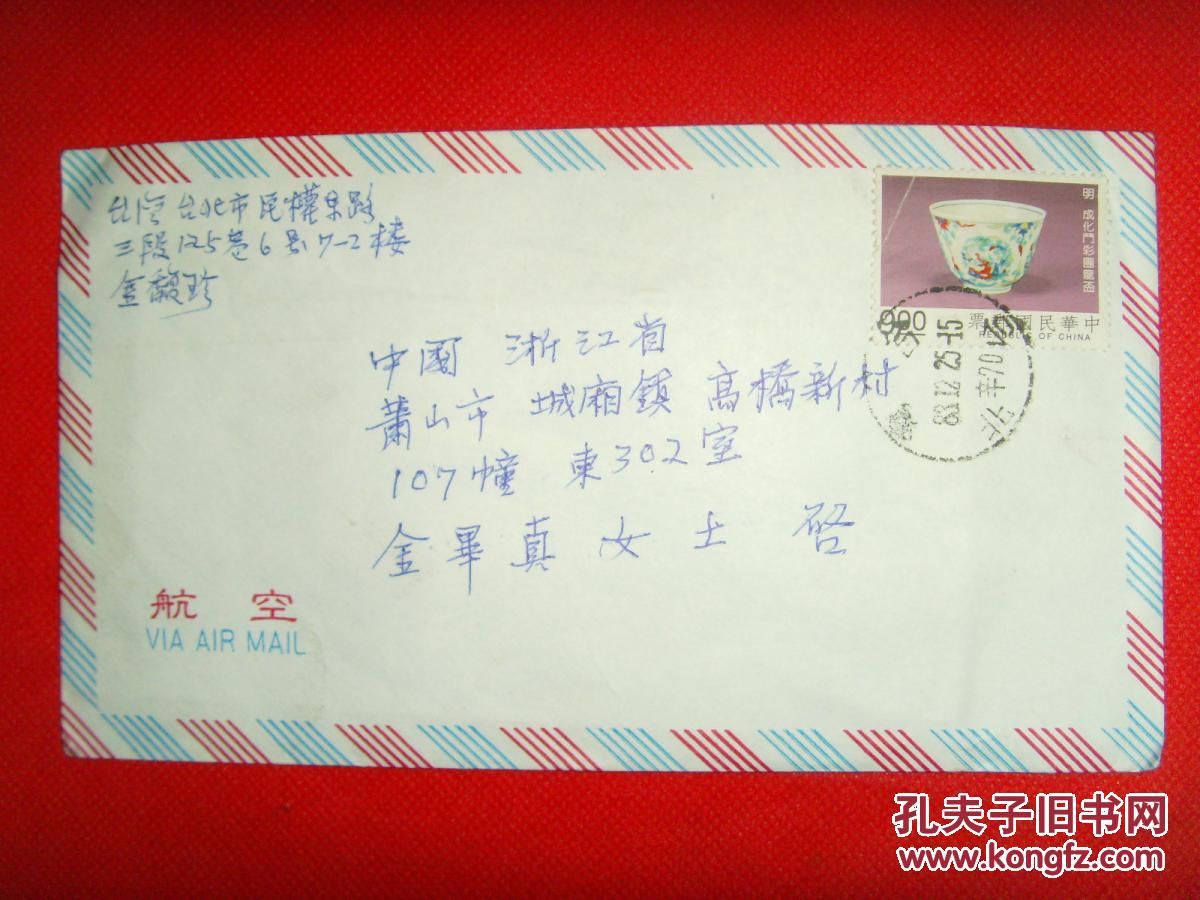 台灣 台北市民權東路
三段125巷6号7-2楼
金馥珍
明 成化鬥彩團龍盃
900
票郵國民華中
REPUBLIC OF CHINA
83.12.25-15
中國 浙江省
蕭山市 城廂鎮 高橋新村
107幢 東302室
金畢真女士 啓
航空
VIA AIR MAIL
孔夫子旧书网
www.kongfz.com